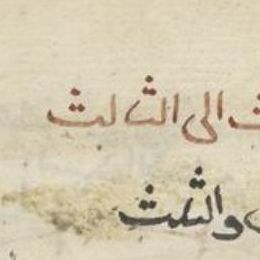 الى الثالث
والثلث